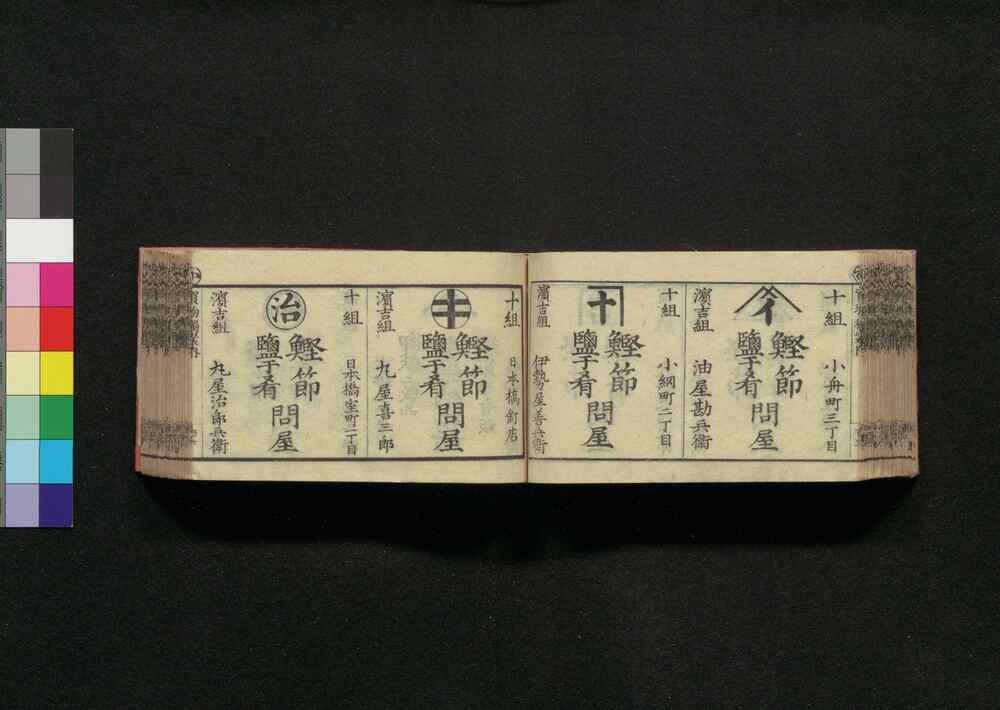 十組
小舟町三丁目
イ
鰹節
鹽干肴
問屋
濱吉組
油屋勘兵衛
十組
小網町二丁目
十
鰹節
鹽干肴
問屋
濱吉組
伊勢屋善兵衛
十組
日本橋釘店
キ
鰹節
鹽干肴
問屋
濱吉組
丸屋喜三郎
十組
日本橋室町二丁目
治
鰹節
鹽干肴
問屋
濱吉組
丸屋治郎兵衛